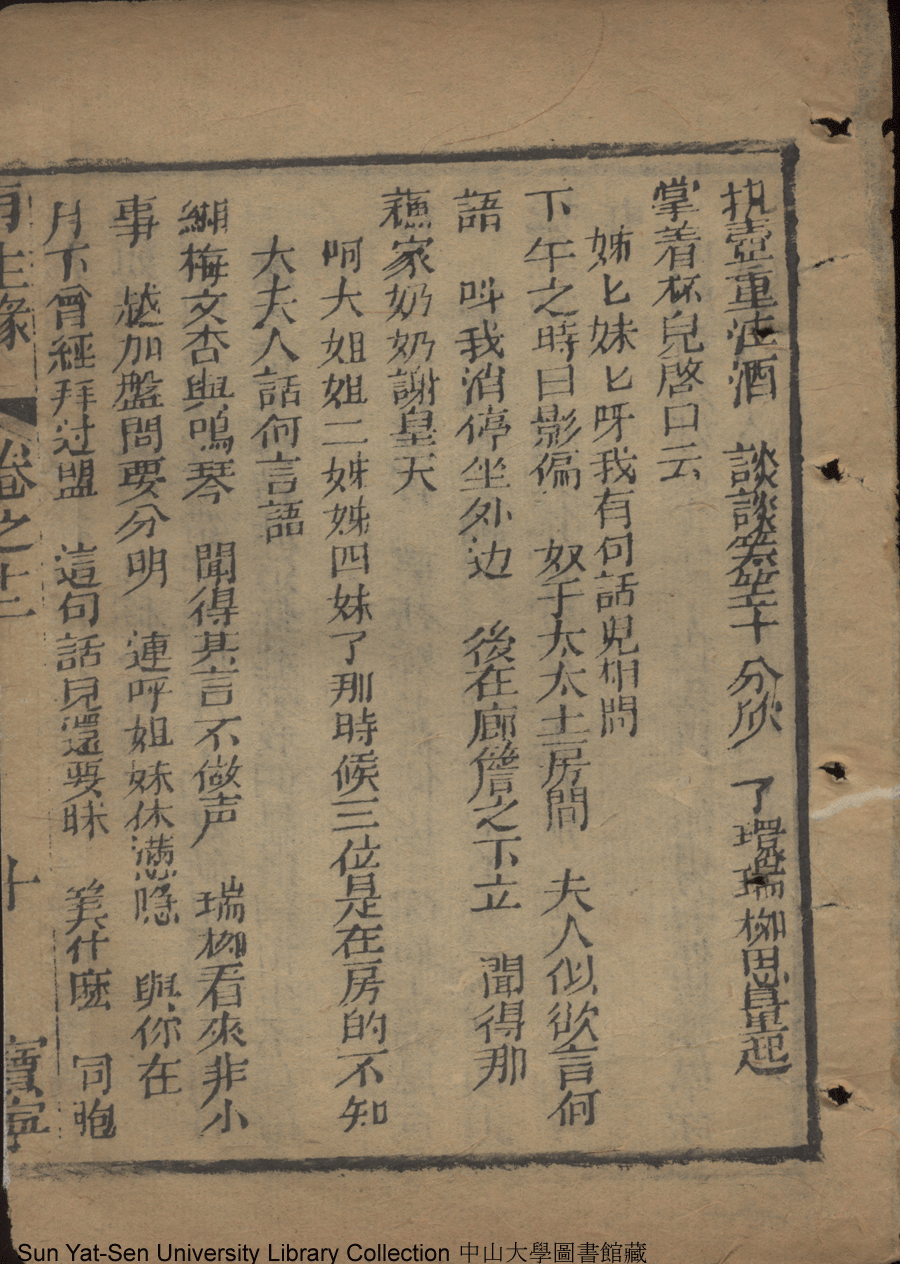 执壺重洒酒 談談笑笑十分欣 了環瑞柳思量起
掌着杯兒啓口云
姊匕妹匕呀我有句話兒相問
下午之時日影偏 奴于太太土房問 夫人似欲言何
語 叫我消停坐外边 後在廊簷之下立 聞得那
蘓家奶奶謝皇天
呵大姐姐二姊姊四妹了那時候三位是在房的不知
大夫人話何言語
緗梅文杏與鳴琴 聞得其言不做声 瑞柳看來非小
事 越加盤問要分明 連呼姐妹休瞞隐 與你在
月下曾經拜过盟 這句話兒還要昧 筭什麽 同胞
再生緣 卷之十二 十 寶寧
Sun Yat-Sen University Library Collection 中山大學圖書館藏